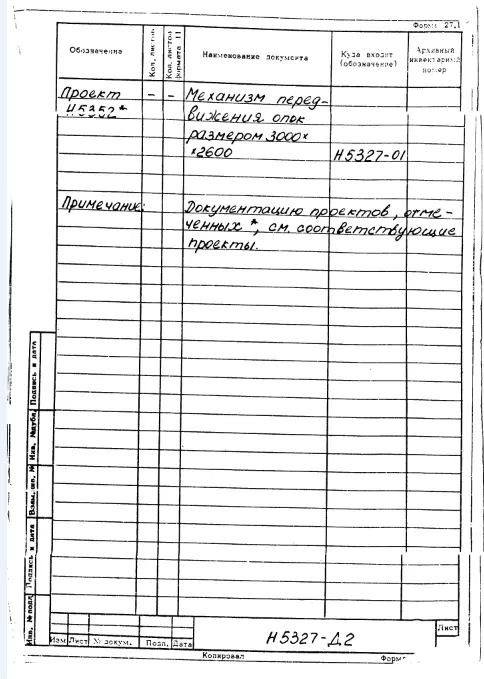 Форма 27.1
Обозначение
Кол. листов
Кол. листов формата 11
Наименование документа
Куда входит
(обозначение)
Архивный
инвентарный
номер
Проект - - Механизм перед-
Н5352* вижения опок
размером 3000×
×2600 Н5327-01
Примечание: Документацию проектов, отме-
ченных *, см. соответствующие
проекты.
Подпись и дата
Инв. № дубл.
Взам. инв. №
Подпись и дата
Инв. № подл.
Изм Лист № докум. Подп. Дата
Н5327-Д2
Лист
Копировал Форма